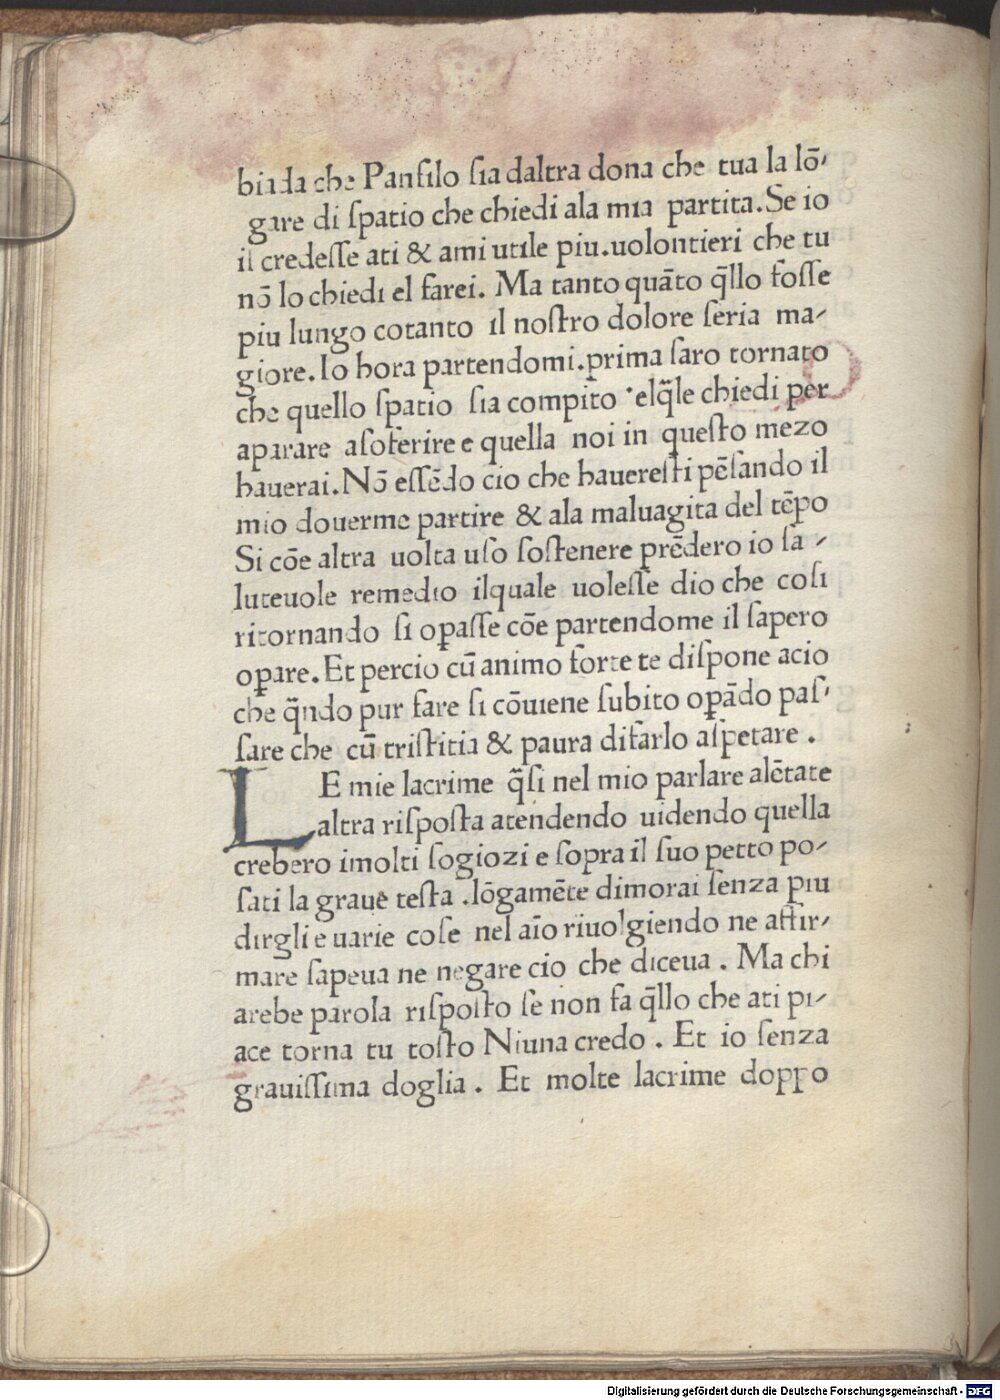 biada che Panfilo ſia daltra dona che tua la lō-
gare di ſpatio che chiedi ala mia partita. Se io
il credeſſe ati & ami utile piu.uolontieri che tu
nō lo chiedi el farei. Ma tanto quāto q̄llo foſſe
piu lungo cotanto il noſtro dolore ſeria ma-
giore. Io hora partendomi.prima ſaro tornato
che quello ſpatio ſia compito ·elq̄le chiedi per
aparare aſoferire e quella noi in queſto mezo
hauerai. Nō eſſēdo cio che hauereſti pēſando il
mio douerme partire & ala maluagita del tēpo
Si cōe altra uolta uſo ſoſtenere prēdero io ſa -
luteuole remedio ilquale uoleſſe dio che coſi
ritornando ſi oꝑaſſe cōe partendome il ſapero
oꝑare. Et percio cū animo forte te diſpone acio
che q̄ndo pur fare ſi cōuiene ſubito oꝑādo paſ-
ſare che cū triſtitia & paura difarlo aſpetare .
LE mie lacrime q̄ſi nel mio parlare alētate
altra riſpoſta atendendo uidendo quella
crebero imolti ſogiozi e ſopra il ſuo petto po-
ſati la graue teſta .lōgamēte dimorai ſenza piu
dirgli e uarie coſe nel aīo riuolgiendo ne affir-
mare ſapeua ne negare cio che diceua . Ma chi
arebe parola riſpoſto ſe non fa q̄llo che ati pi-
ace torna tu toſto Niuna credo . Et io ſenza
grauiſſima doglia . Et molte lacrime doppo
Digitalisierung gefördert durch die Deutsche Forschungsgemeinschaft - DFG